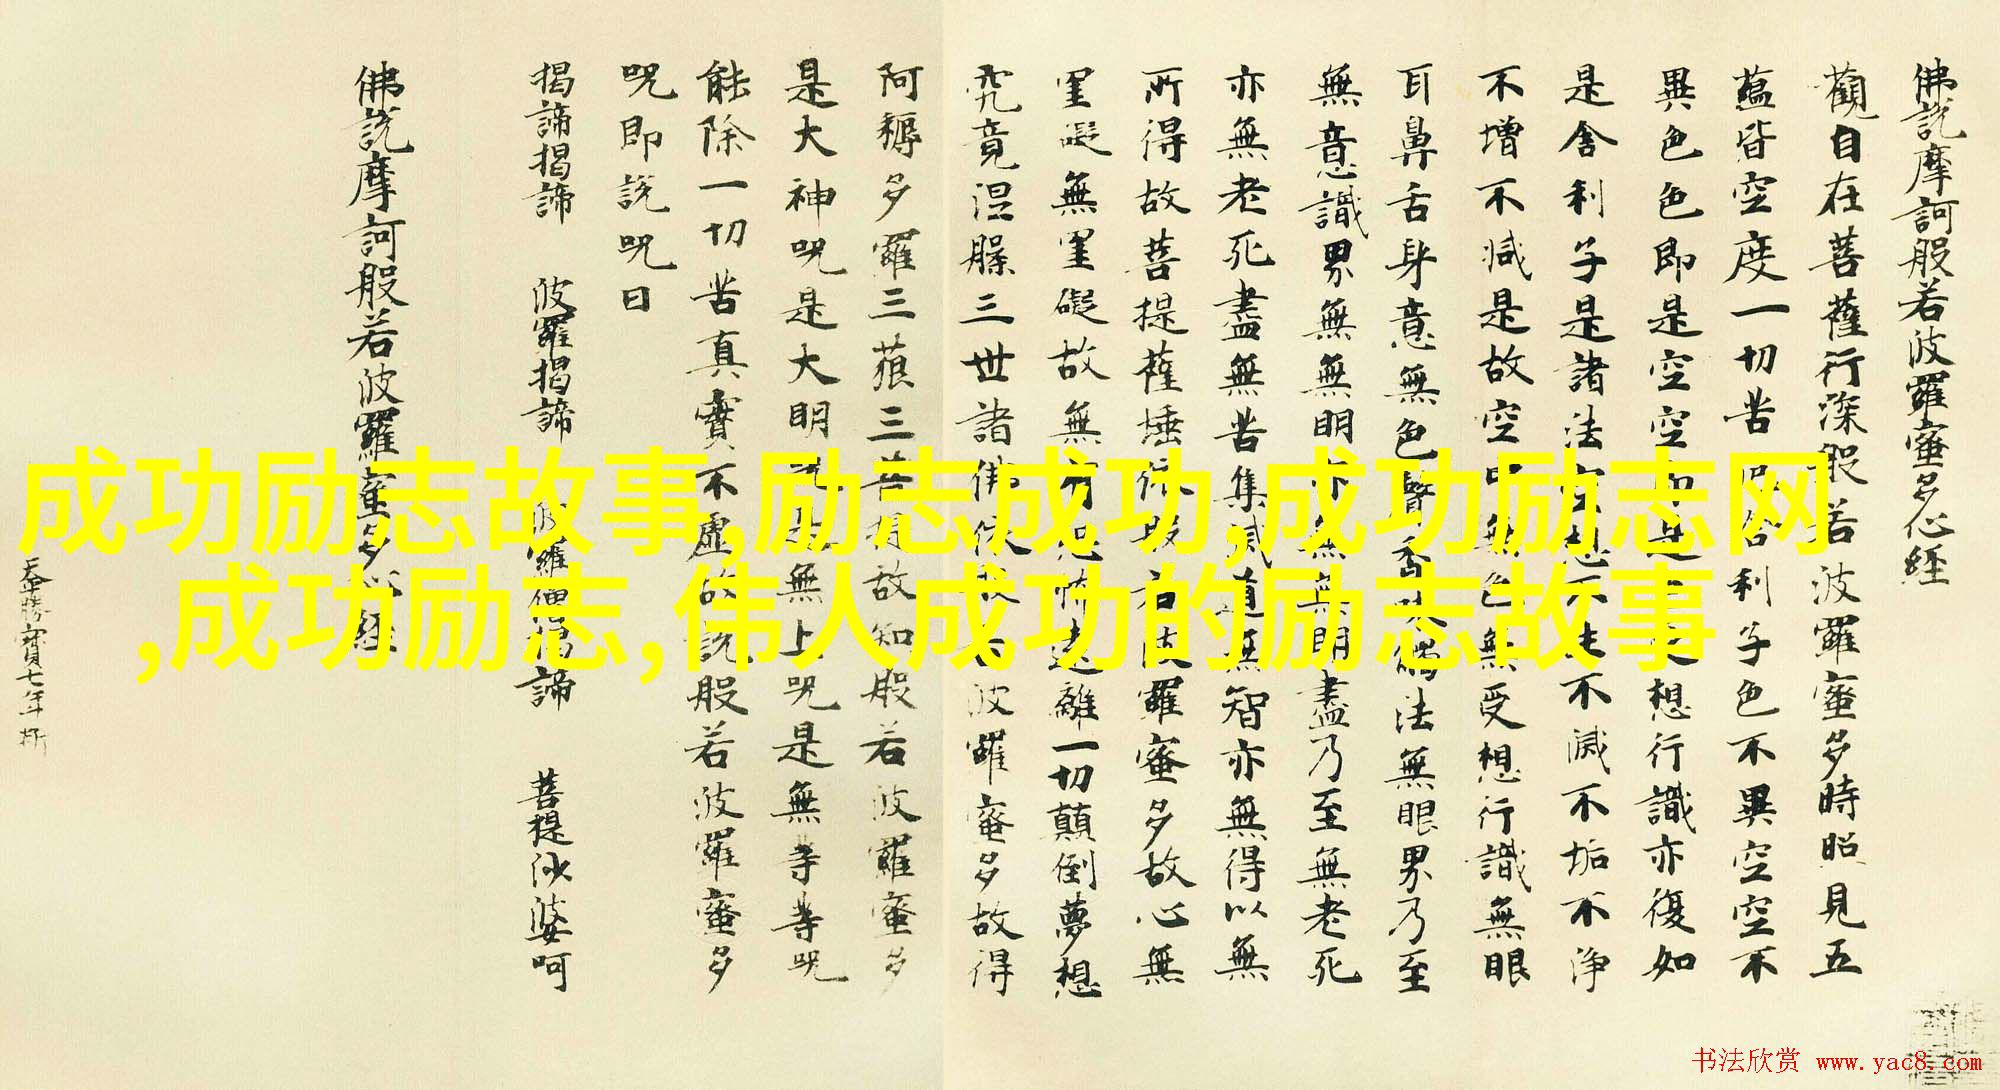 佛說摩訶般若波羅蜜多心經
觀自在菩薩行深般若波羅蜜多時照見五
蘊皆空度一切苦厄舍利子色不異空空不
異色色即是空空是受想行識亦復如
是舍利子是諸法空想不生不滅不垢不淨
不增不減是故空中無色無受想行識無眼
耳鼻舌身意無色聲香觸法無眼界乃至
無意識界無無明亦無無明盡乃至無老死
亦無老死盡無苦集滅道無智亦無得以無
所得故菩提薩埵依般若波羅蜜多故心無
罣礙無罣礙故無有恐怖遠離一切顛倒夢想
究竟涅槃三世諸佛依般若波羅蜜多故得
阿耨多羅三藐三菩提故知般若波羅蜜多
是大神呪是大明呪是無上呪是無等等呪
能除一切苦真實不虛故說般若波羅蜜多
呪即說呪曰
揭諦揭諦 波羅揭諦 波羅僧揭諦 菩提
佛說摩訶般若波羅蜜多心經
勝寶七年
成功励志故事,励志成功,成功励志网
,成功励志,伟人成功的励志故事
书法欣赏 www.yac8.com